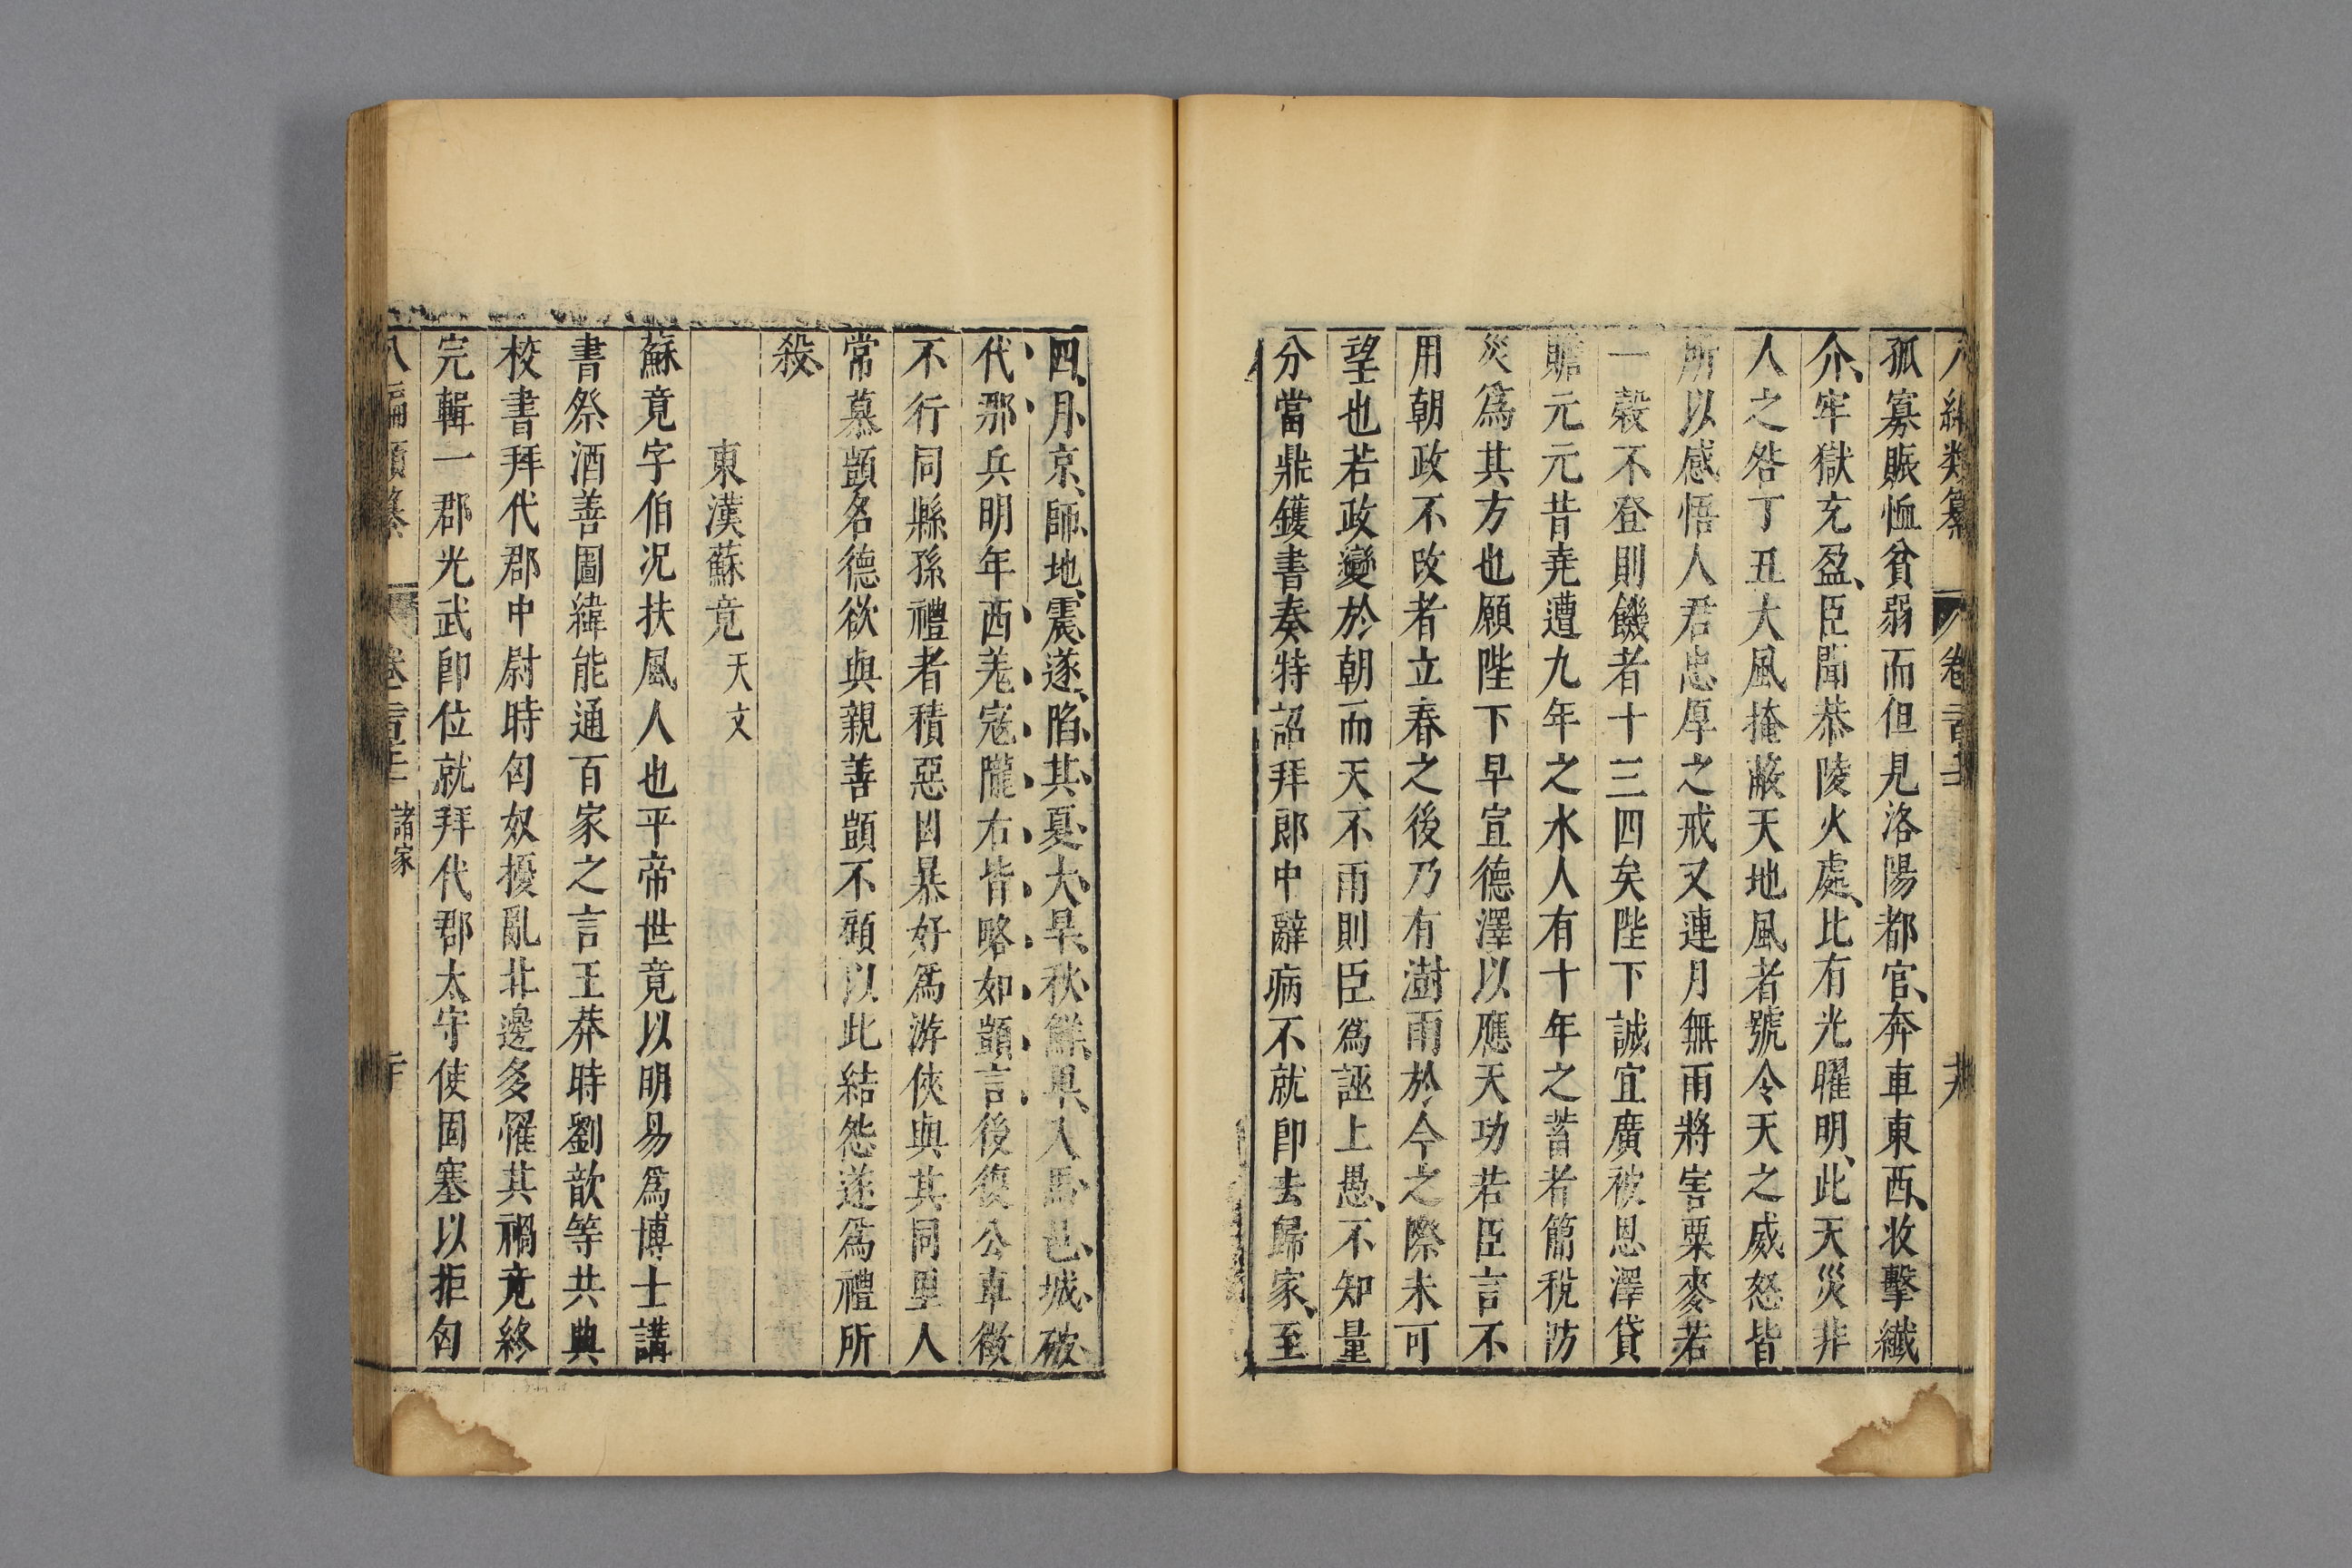 八編類纂 卷
孤寡賑恤貧弱而但見洛陽都官奔車東西收擊纖
介牢獄充盈臣聞恭陵火處比有光曜明此天災非
人之咎丁丑大風掩蔽天地風者號令天之威怒皆
所以感悟人君忠厚之戒又連月無雨將害粟麥若
一榖不登則饑者十三四矣陛下誠宜廣被恩澤貸
贍元元昔堯遭九年之水人有十年之蓄者簡稅防
災爲其方也願陛下早宣德澤以應天功若臣言不
用朝政不改者立春之後乃有澍雨於今之際未可
望也若政變於朝而天不雨則臣爲誣上愚不知量
分當鼎鑊書奏特詔拜郎中辭病不就卽去歸家至
四月京師地震遂陷其夏大旱秋鮮卑入馬邑城破
代郡兵明年西羌寇隴右皆略如顗言後復公車徵
不行同縣孫禮者積惡凶暴好爲游俠與其同里人
常慕顗名德欲與親善顗不顧以此結怨遂爲禮所
殺
東漢蘇竟 天文
蘇竟字伯况扶風人也平帝世竟以明易爲博士講
書祭酒善圖緯能通百家之言王莽時劉歆等共典
校書拜代郡中尉時匈奴擾亂北邊多罹其禍竟終
完輯一郡光武卽位就拜代郡太守使固塞以拒匈
八編類纂 卷 諸家